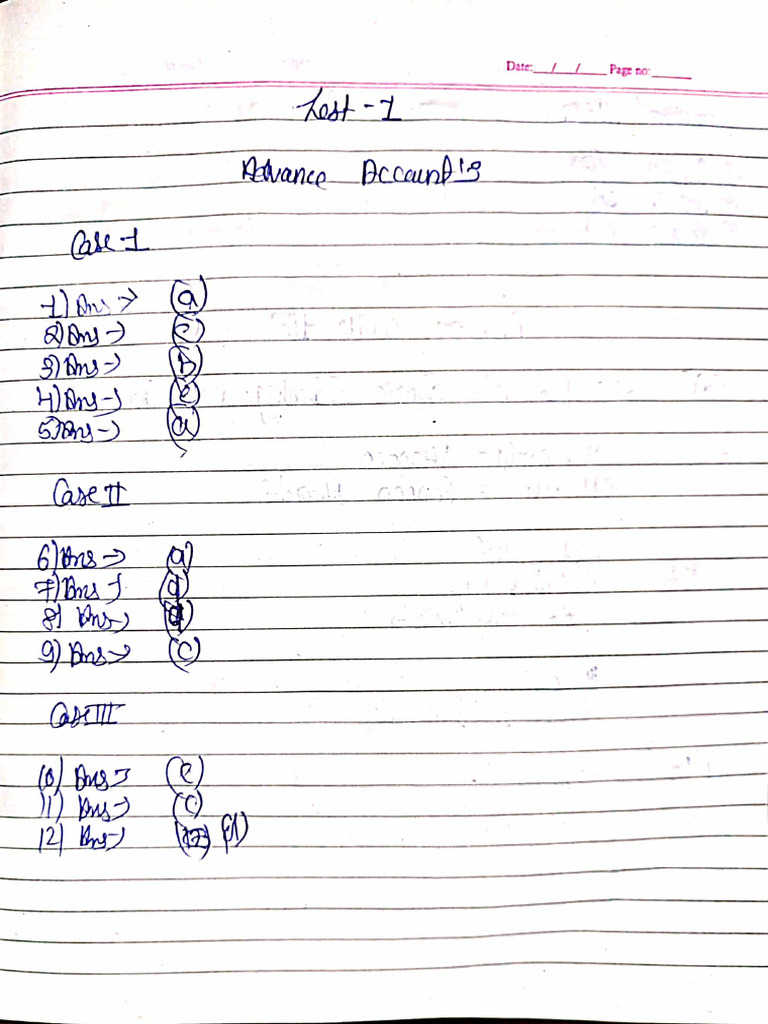 Date: / / Page no:
Test - 1
Advance Account's
Case - I
1) Ans → (a)
2) Ans → (c)
3) Ans → (B)
4) Ans → (c)
5) Ans → (a)
Case II
6) Ans → (a)
7) Ans → (d)
8) Ans → (d)
9) Ans → (C)
Case III
10) Ans → (c)
11) Ans → (C)
12) Ans →